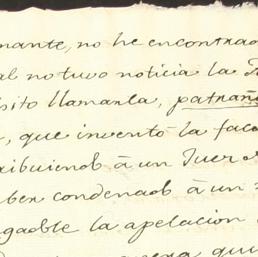 nante, no he encontrad
al no tuvo noticia la
sito llamarla, patrañ
, que inventó la fac
ribuiendo à un Juez
ber condenado à un
gable la apelacion